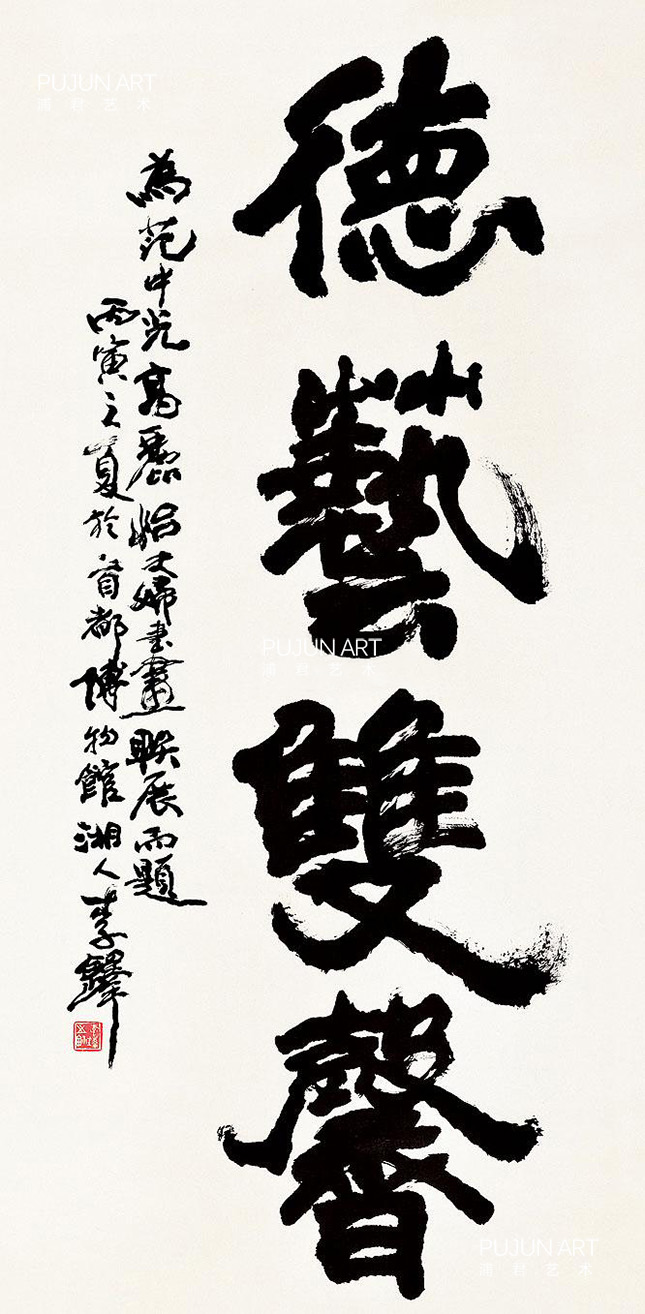 德藝雙馨
為范中光高麗怡夫婦書畫聯展而題
丙寅之夏於首都博物館湘人李鐸
PUJUN ART
浦君艺术
PUJUN ART
浦君艺术
PUJUN ART
浦君艺术